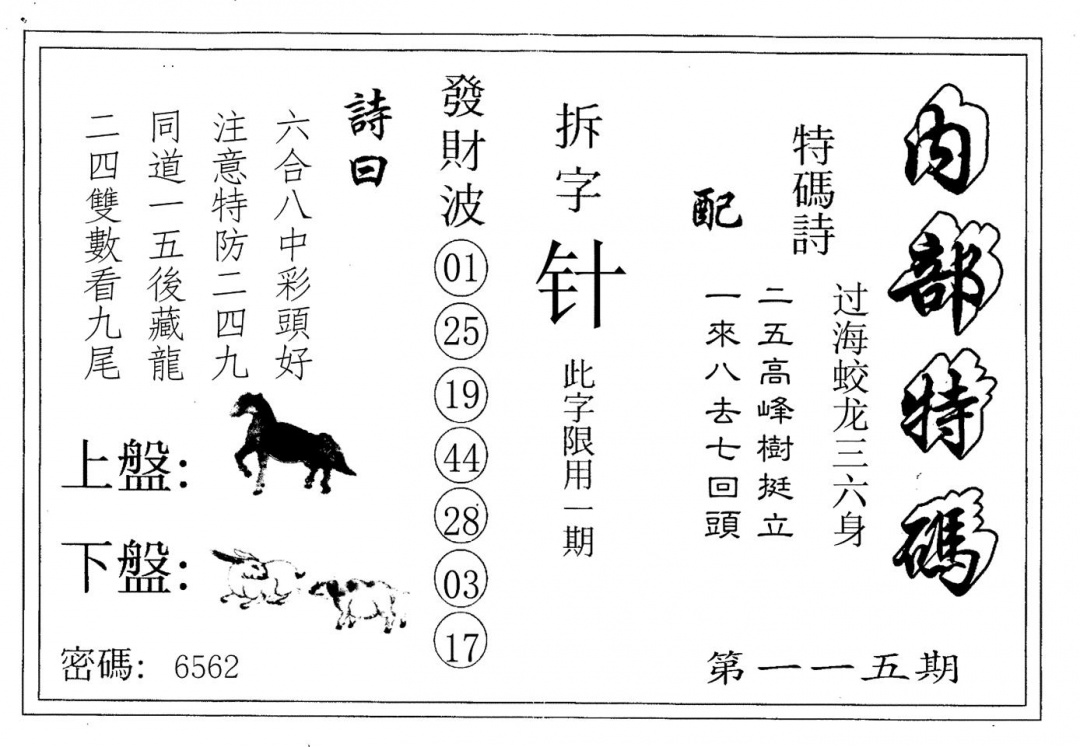 内部特碼
第一一五期
特碼詩
过海蛟龙三六身
配
二五高峰樹挺立
一來八去七回頭
拆字
针
此字限用一期
發財波
01
25
19
44
28
03
17
詩曰
六合八中彩頭好
注意特防二四九
同道一五後藏龍
二四雙數看九尾
上盤：
下盤：
密碼： 6562